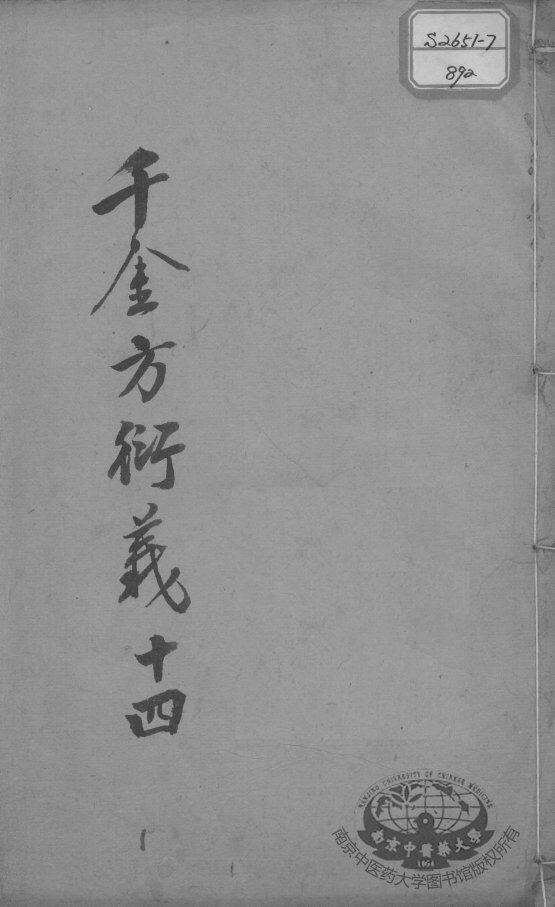 S2651-7
892
千金方衍義 十四
NANJING UNIVERSITY OF CHINESE MEDICINE
南京中醫藥大學
1954
南京中医药大学图书馆版权所有